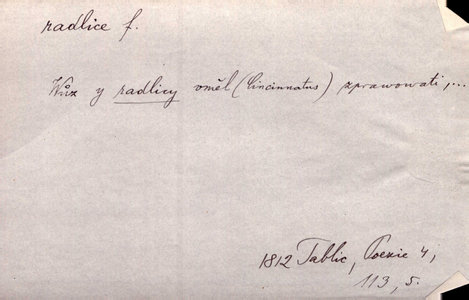 radlice f.
Wůz y radlicy vměl (Cincinnatus) zprawowati,...
1812 Tablic, Poezie 4,
113, 5.